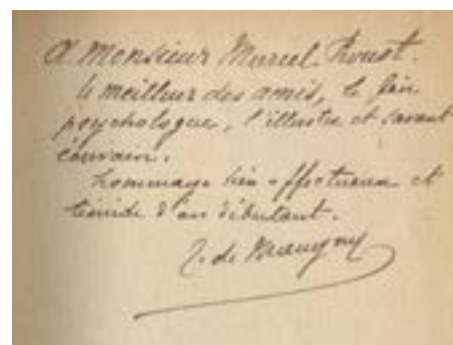 A Monsieur Marcel Proust.
le meilleur des amis, le fin
psychologue, l'illustre et savant
écrivain.
hommage bien affectueux et
timide d'un débutant.
de